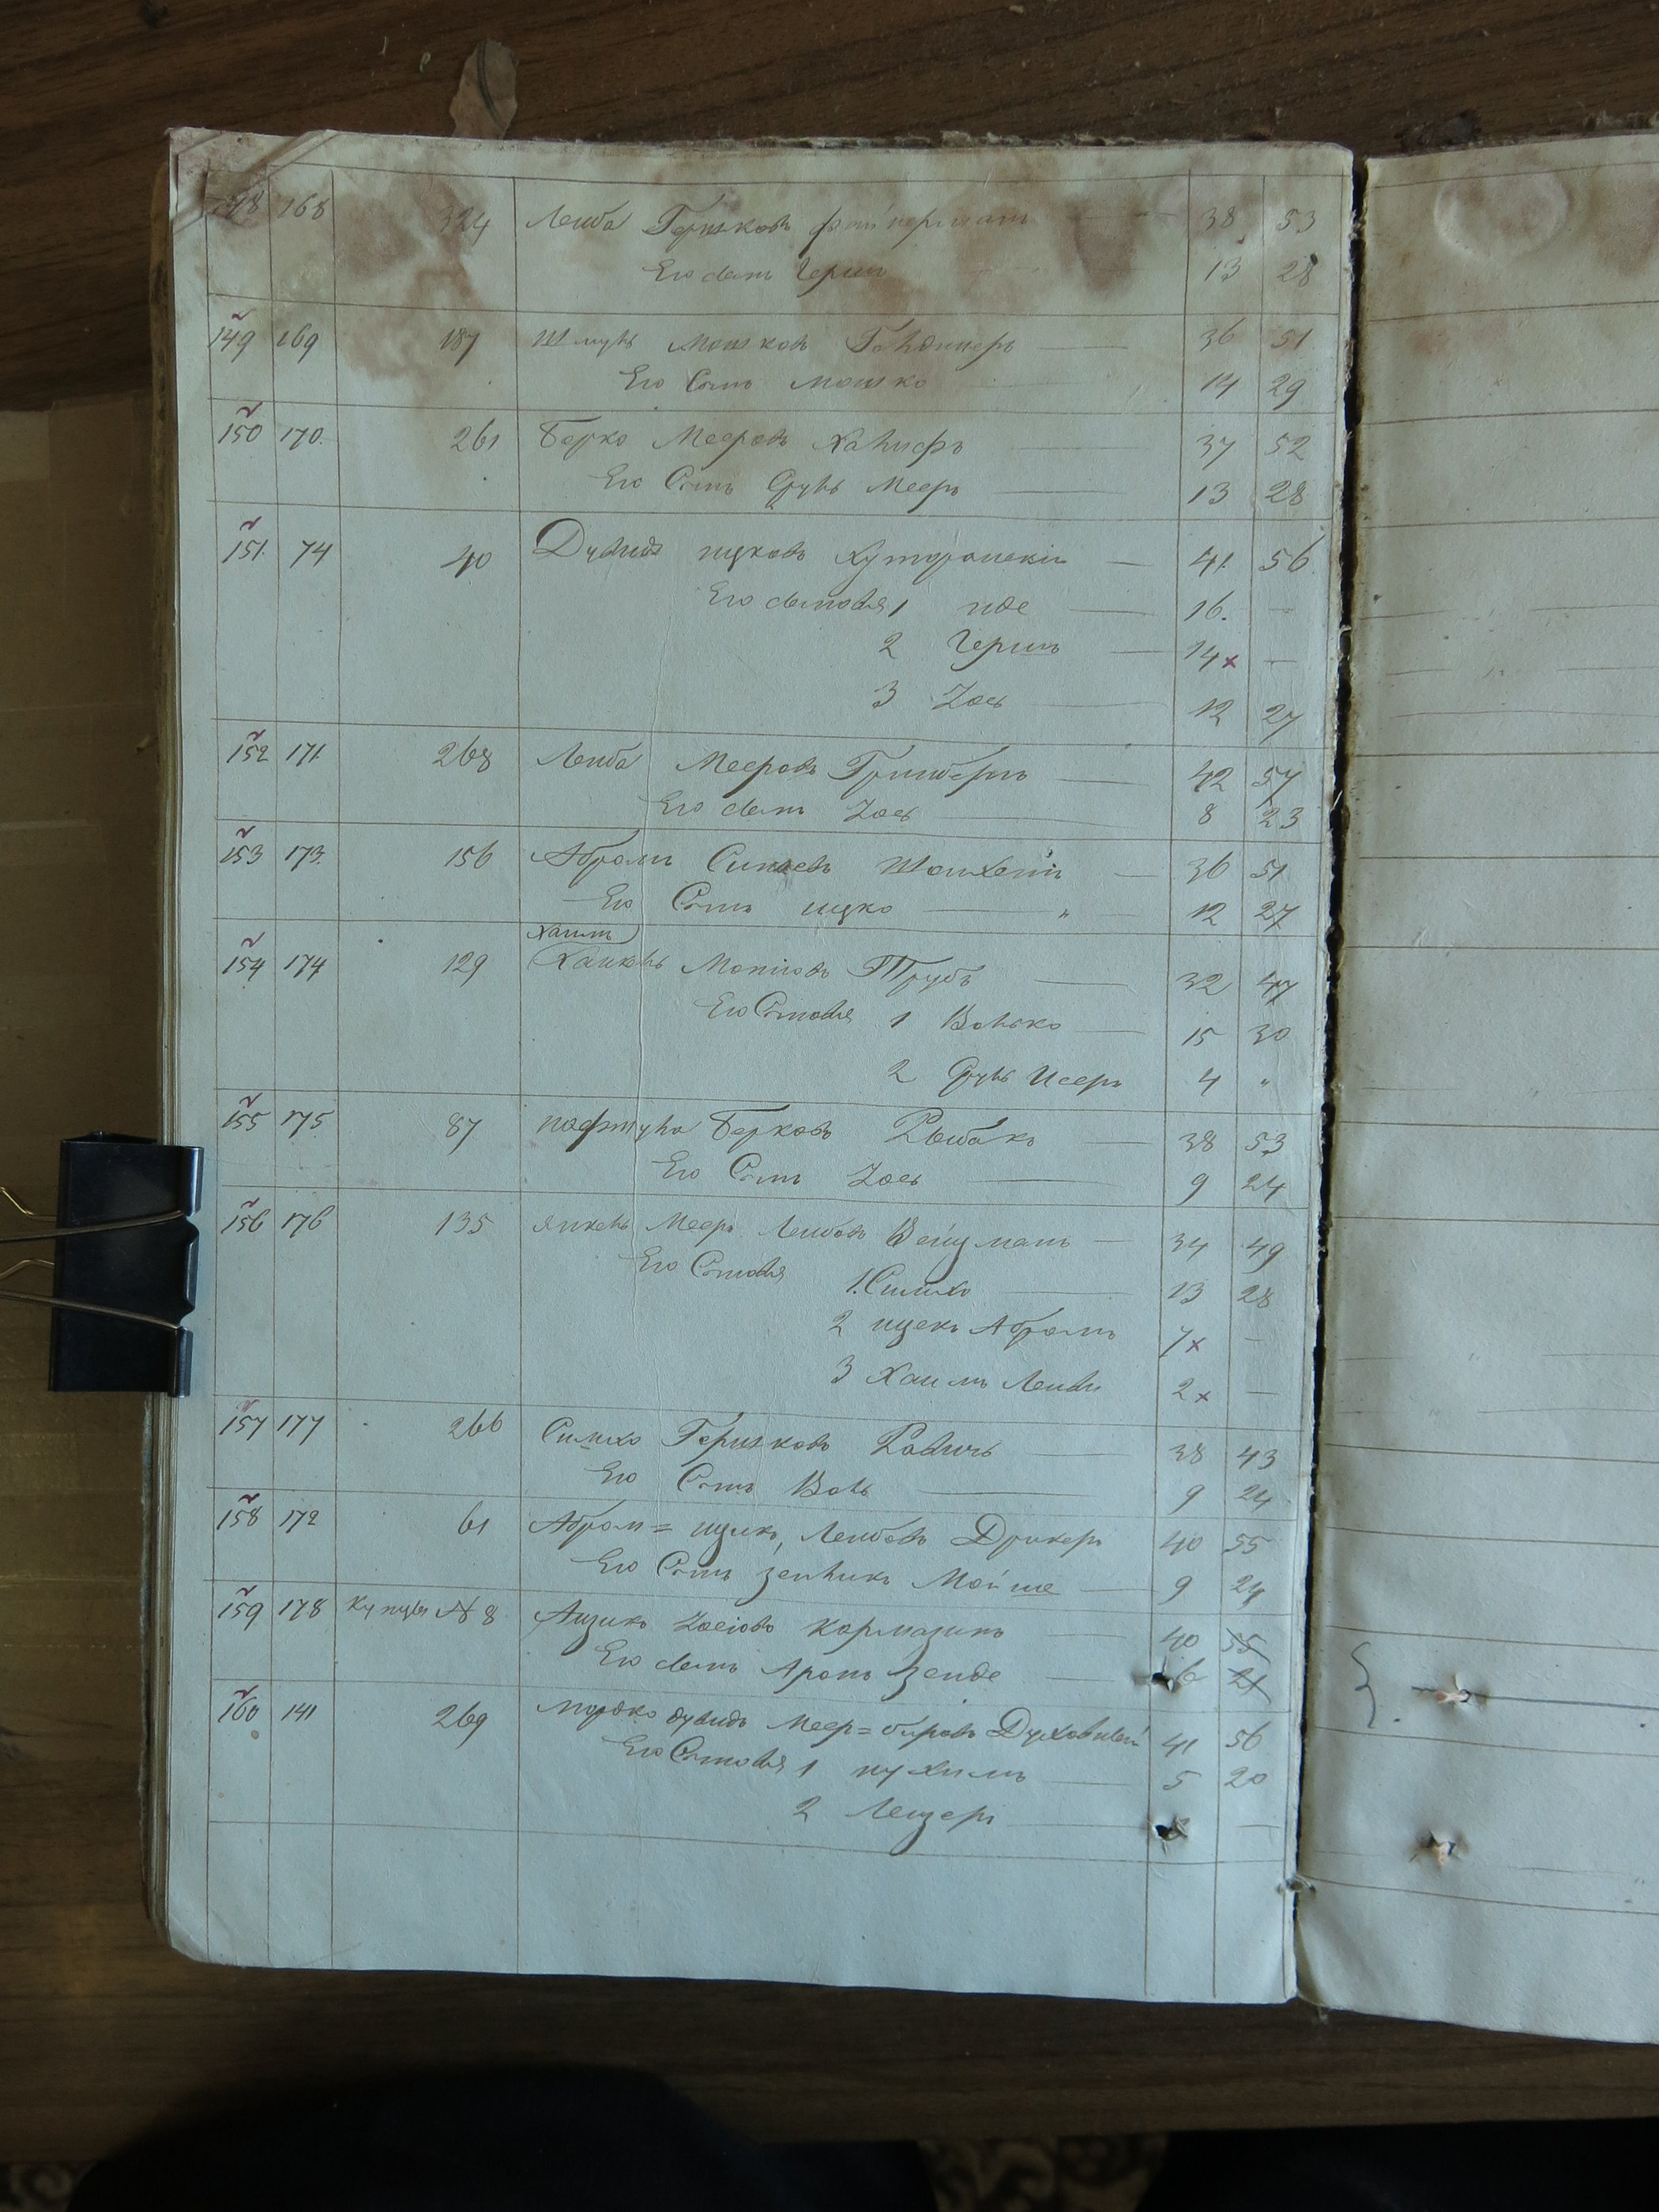 148 168 324 Леиба Гершковъ Фаинерманъ 38 53
Его сынъ Гершъ 13 28
149 169 187 Шмуль Мошковъ Гольднеръ 36 51
Его Сынъ Мошко 14 29
150 170. 261 Берко Мееровъ Халифъ 37 52
Его Сынъ Сруль Мееръ 13 28
151. 74 40 Дувидъ ицковъ Хуторанскіи 41. 56.
Его сыновья 1 иде 16. —
2 Гершъ 14 x —
3 Іось 12 27
152 171 268 Леиба Мееровъ Гринбергъ 42 57
Его сынъ Іось 8 23
153 173. 156 Абрамъ 36 51
Его Сынъ ицко 12 27
Хаимъ
154 174 129 Хаикель Трубъ 32 47
Его Сыновья 1 Волько 15 30
2 Сруль Исеръ 4 "
155 175 87 нафтула Берковъ Рыбакъ 38 53
Его Сынъ Іось 9 24
156 176 135 янкель Мееръ Леибовъ Веицманъ 34 49
Его Сыновья 1. Симхо 13 28
2 ицекъ Абрамъ 7 x —
3 Хаимъ Леиви 2 x —
157 177 266 Симхо Гершковъ Рабичъ 38 43
Его Сынъ Воль 9 24
158 172 61 Абрам= ицикъ, Леибовъ Дрикеръ 40 55
Его Сынъ зельикъ Мойше 9 24
159 178 Купцы № 8 Аизикъ Іосіовъ Кармазинъ 40 55
Его сынъ Аронъ Зейде 6 21
160 141 269 мордко дувидъ Меер= Духовный 41 56
Его Сыновья 1 нухимъ 5 20
2 Леизеръ —